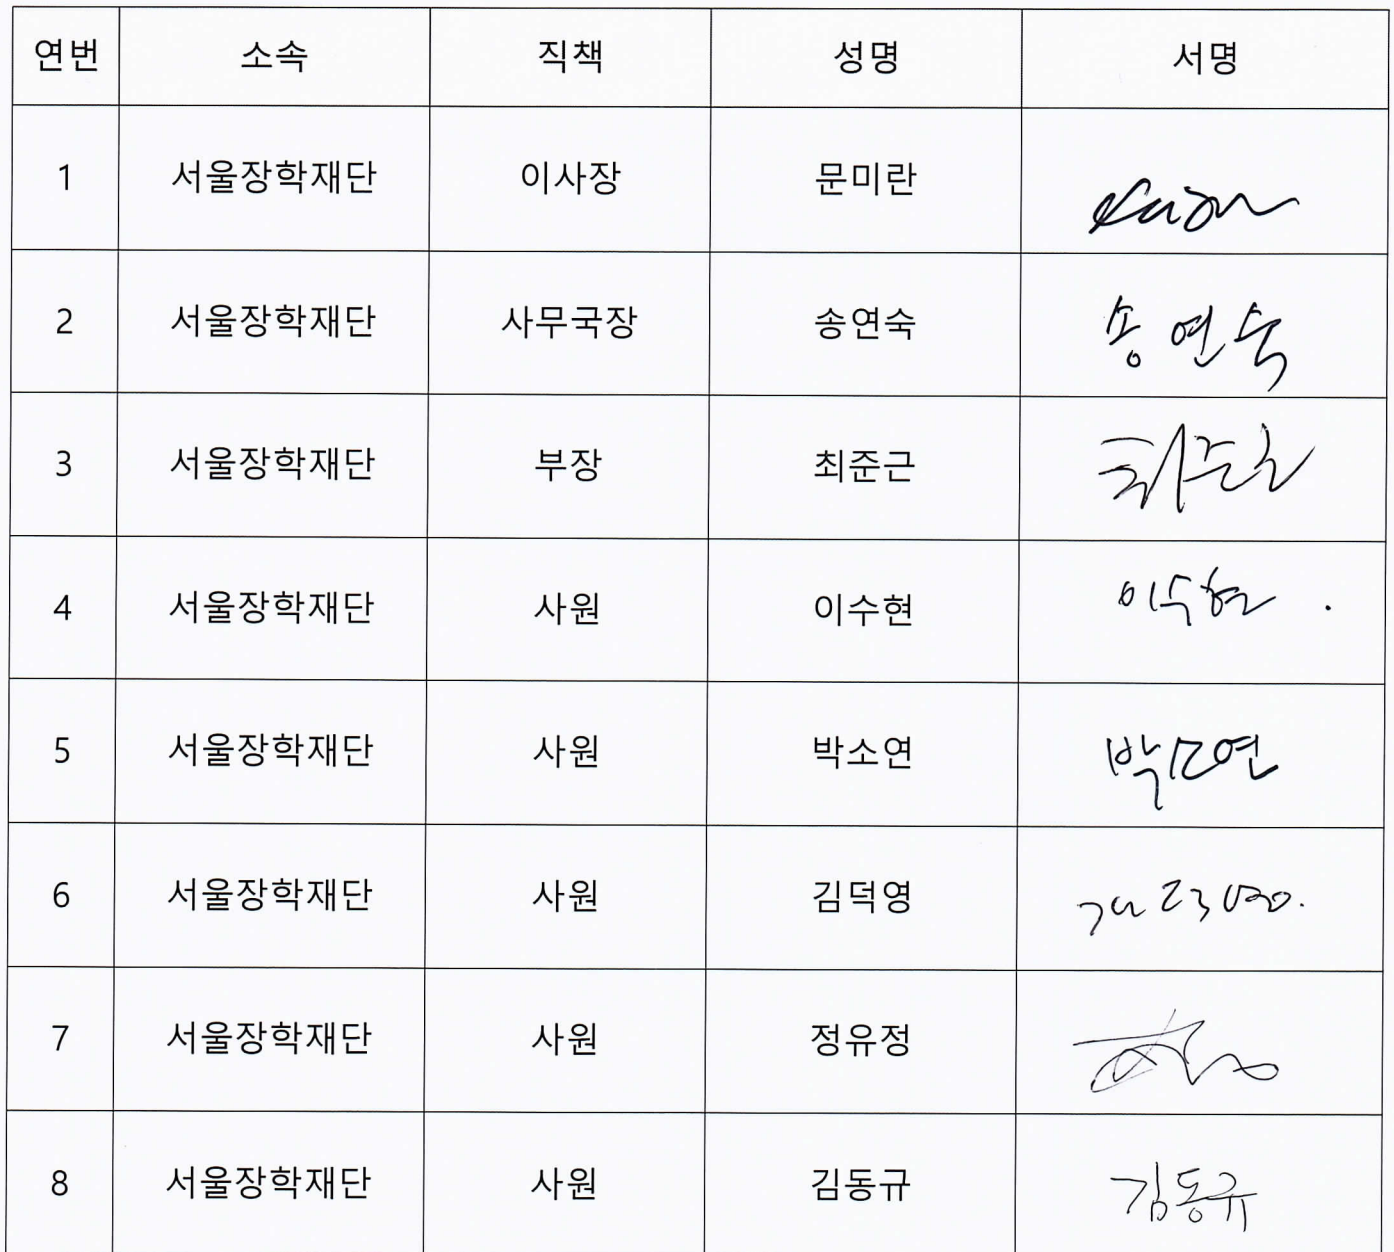 연번 소속 직책 성명 서명
1 서울장학재단 이사장 문미란
2 서울장학재단 사무국장 송연숙 송연숙
3 서울장학재단 부장 최준근 최준근
4 서울장학재단 사원 이수현 이수현
5 서울장학재단 사원 박소연 박소연
6 서울장학재단 사원 김덕영 김덕영
7 서울장학재단 사원 정유정
8 서울장학재단 사원 김동규 김동규